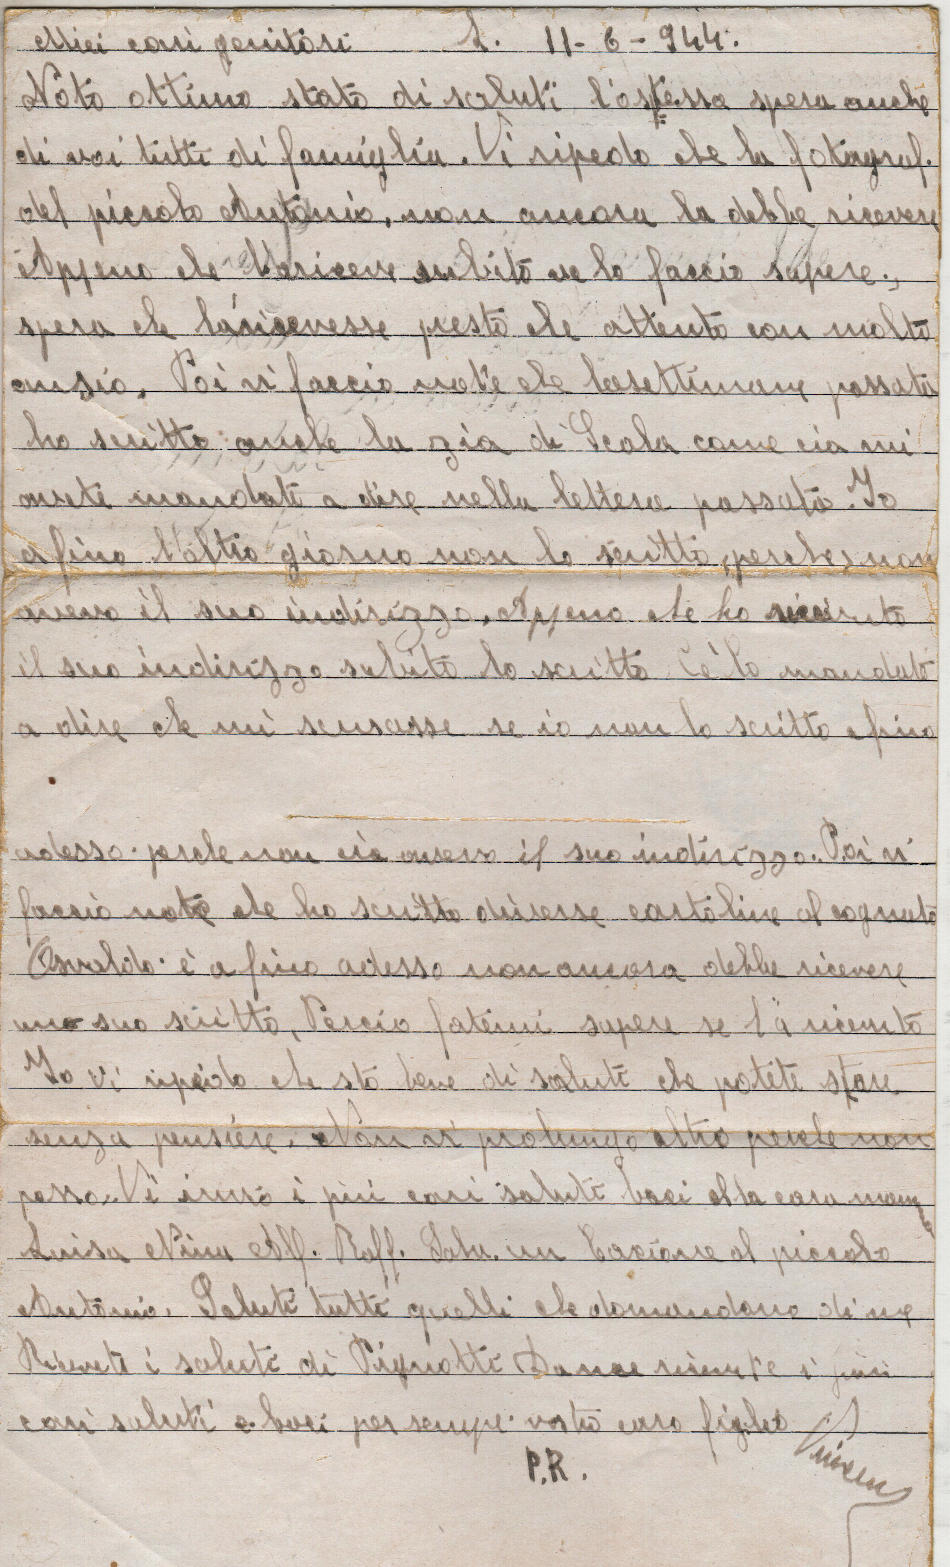 Miei cari genitori L. 11-6-944.
Noto ottimo stato di saluti l'ostessa spera anche
di voi tutti di famiglia. Vi ripedo che la fotagraf.
del piccolo Antonio, non ancora la debbe ricevere
Appena che la riceve subito ve lo faccio sapere.,
spera che la ricevesse presto che attento con molto
ansio. Poi vi faccio note che la settimane passata
ho scritto anche la zia di Scala come cia mi
avete mandate a dire nella lettera passata. Io
afino l'altro giorno non lo scritto, perche non
avevo il suo indirizzo. Appena che ho ricevuto
il suo indirizzo subito lo scritto cé lo mandato
a dire che mi scusasse se io non lo scritto afino
adesso. perche non cia avevo il suo indirizzo. Poi vi
faccio note che ho scritto diverse cartoline al cognato
Osvaldo. é afino adesso non ancora debbe ricevere
suo scritto, Percio fatemi sapere se l'á ricevuto
Io vi ripedo che sto bene di saluti che potete stare
senza pensiere. Non vi prolungo altro perche non
posso. Vi invio i piú cari saluti baci alla cara mam
Luisa Nina Alf. Raff. un bacione al piccolo
Antonio. Saluti tutti quelli che domandano di me
Ricevete i saluti di Pignotti ricevete i piú
cari saluti e baci per sempre vosto caro figlio
Vincenz
P.R.